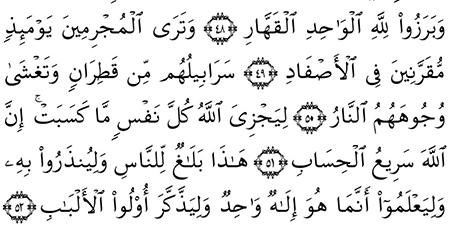 وَبَرَزُوا۟ لِلَّهِ ٱلْوَٰحِدِ ٱلْقَهَّارِ ﴿٤٨﴾ وَتَرَى ٱلْمُجْرِمِينَ يَوْمَئِذٍ
مُّقَرَّنِينَ فِى ٱلْأَصْفَادِ ﴿٤٩﴾ سَرَابِيلُهُم مِّن قَطِرَانٍ وَتَغْشَىٰ
وُجُوهَهُمُ ٱلنَّارُ ﴿٥٠﴾ لِيَجْزِىَ ٱللَّهُ كُلَّ نَفْسٍ مَّا كَسَبَتْ ۚ إِنَّ
ٱللَّهَ سَرِيعُ ٱلْحِسَابِ ﴿٥١﴾ هَٰذَا بَلَٰغٌ لِّلنَّاسِ وَلِيُنذَرُوا۟ بِهِۦ
وَلِيَعْلَمُوٓا۟ أَنَّمَا هُوَ إِلَٰهٌ وَٰحِدٌ وَلِيَذَّكَّرَ أُو۟لُوا۟ ٱلْأَلْبَٰبِ ﴿٥٢﴾